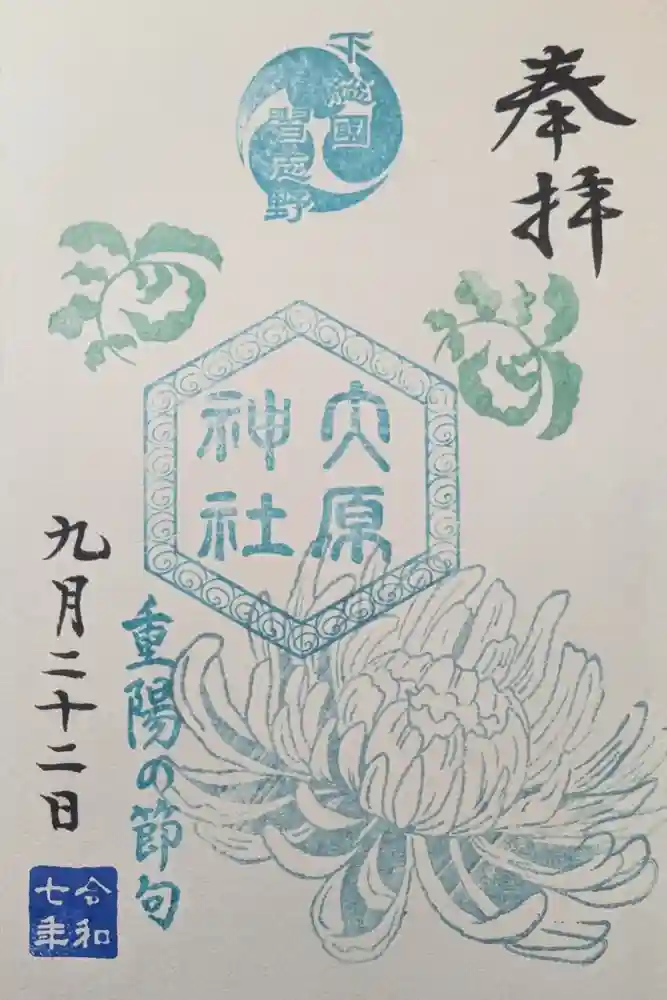 奉拝
下総国
習志野
大原
神社
重陽の節句
九月二十二日
令和
七年